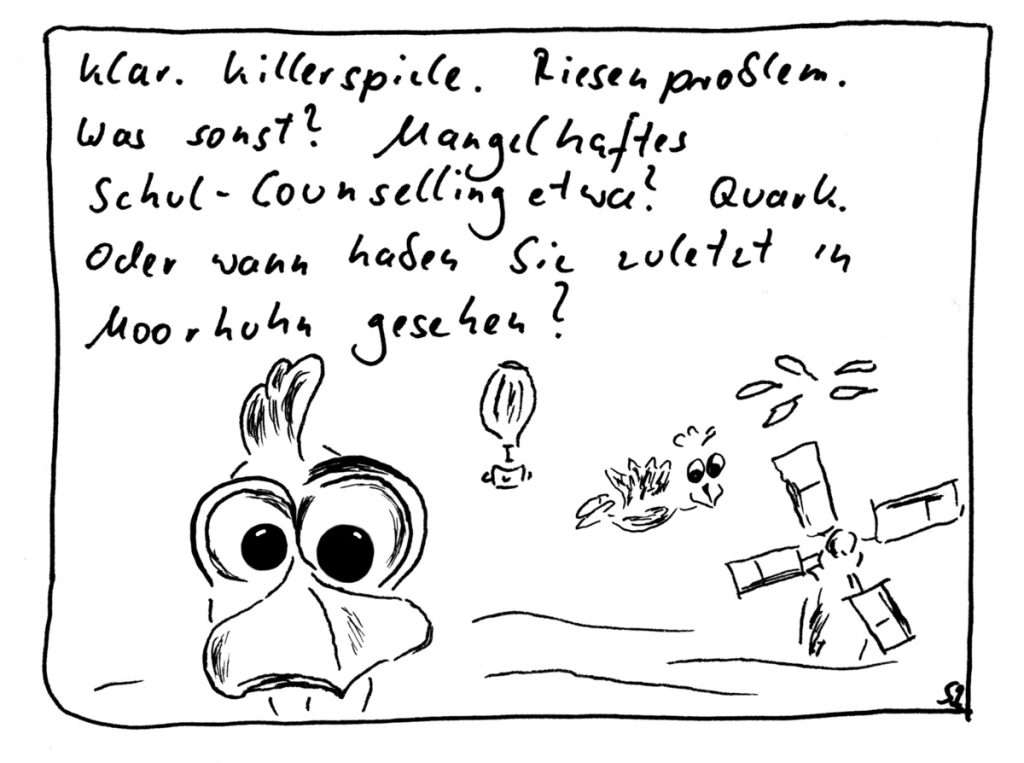 Klar. Killerspiele. Riesenproblem.
Was sonst? Mangelhaftes
Schul-Counselling etwa? Quark.
Oder wann haben Sie zuletzt in
Moorhuhn gesehen?